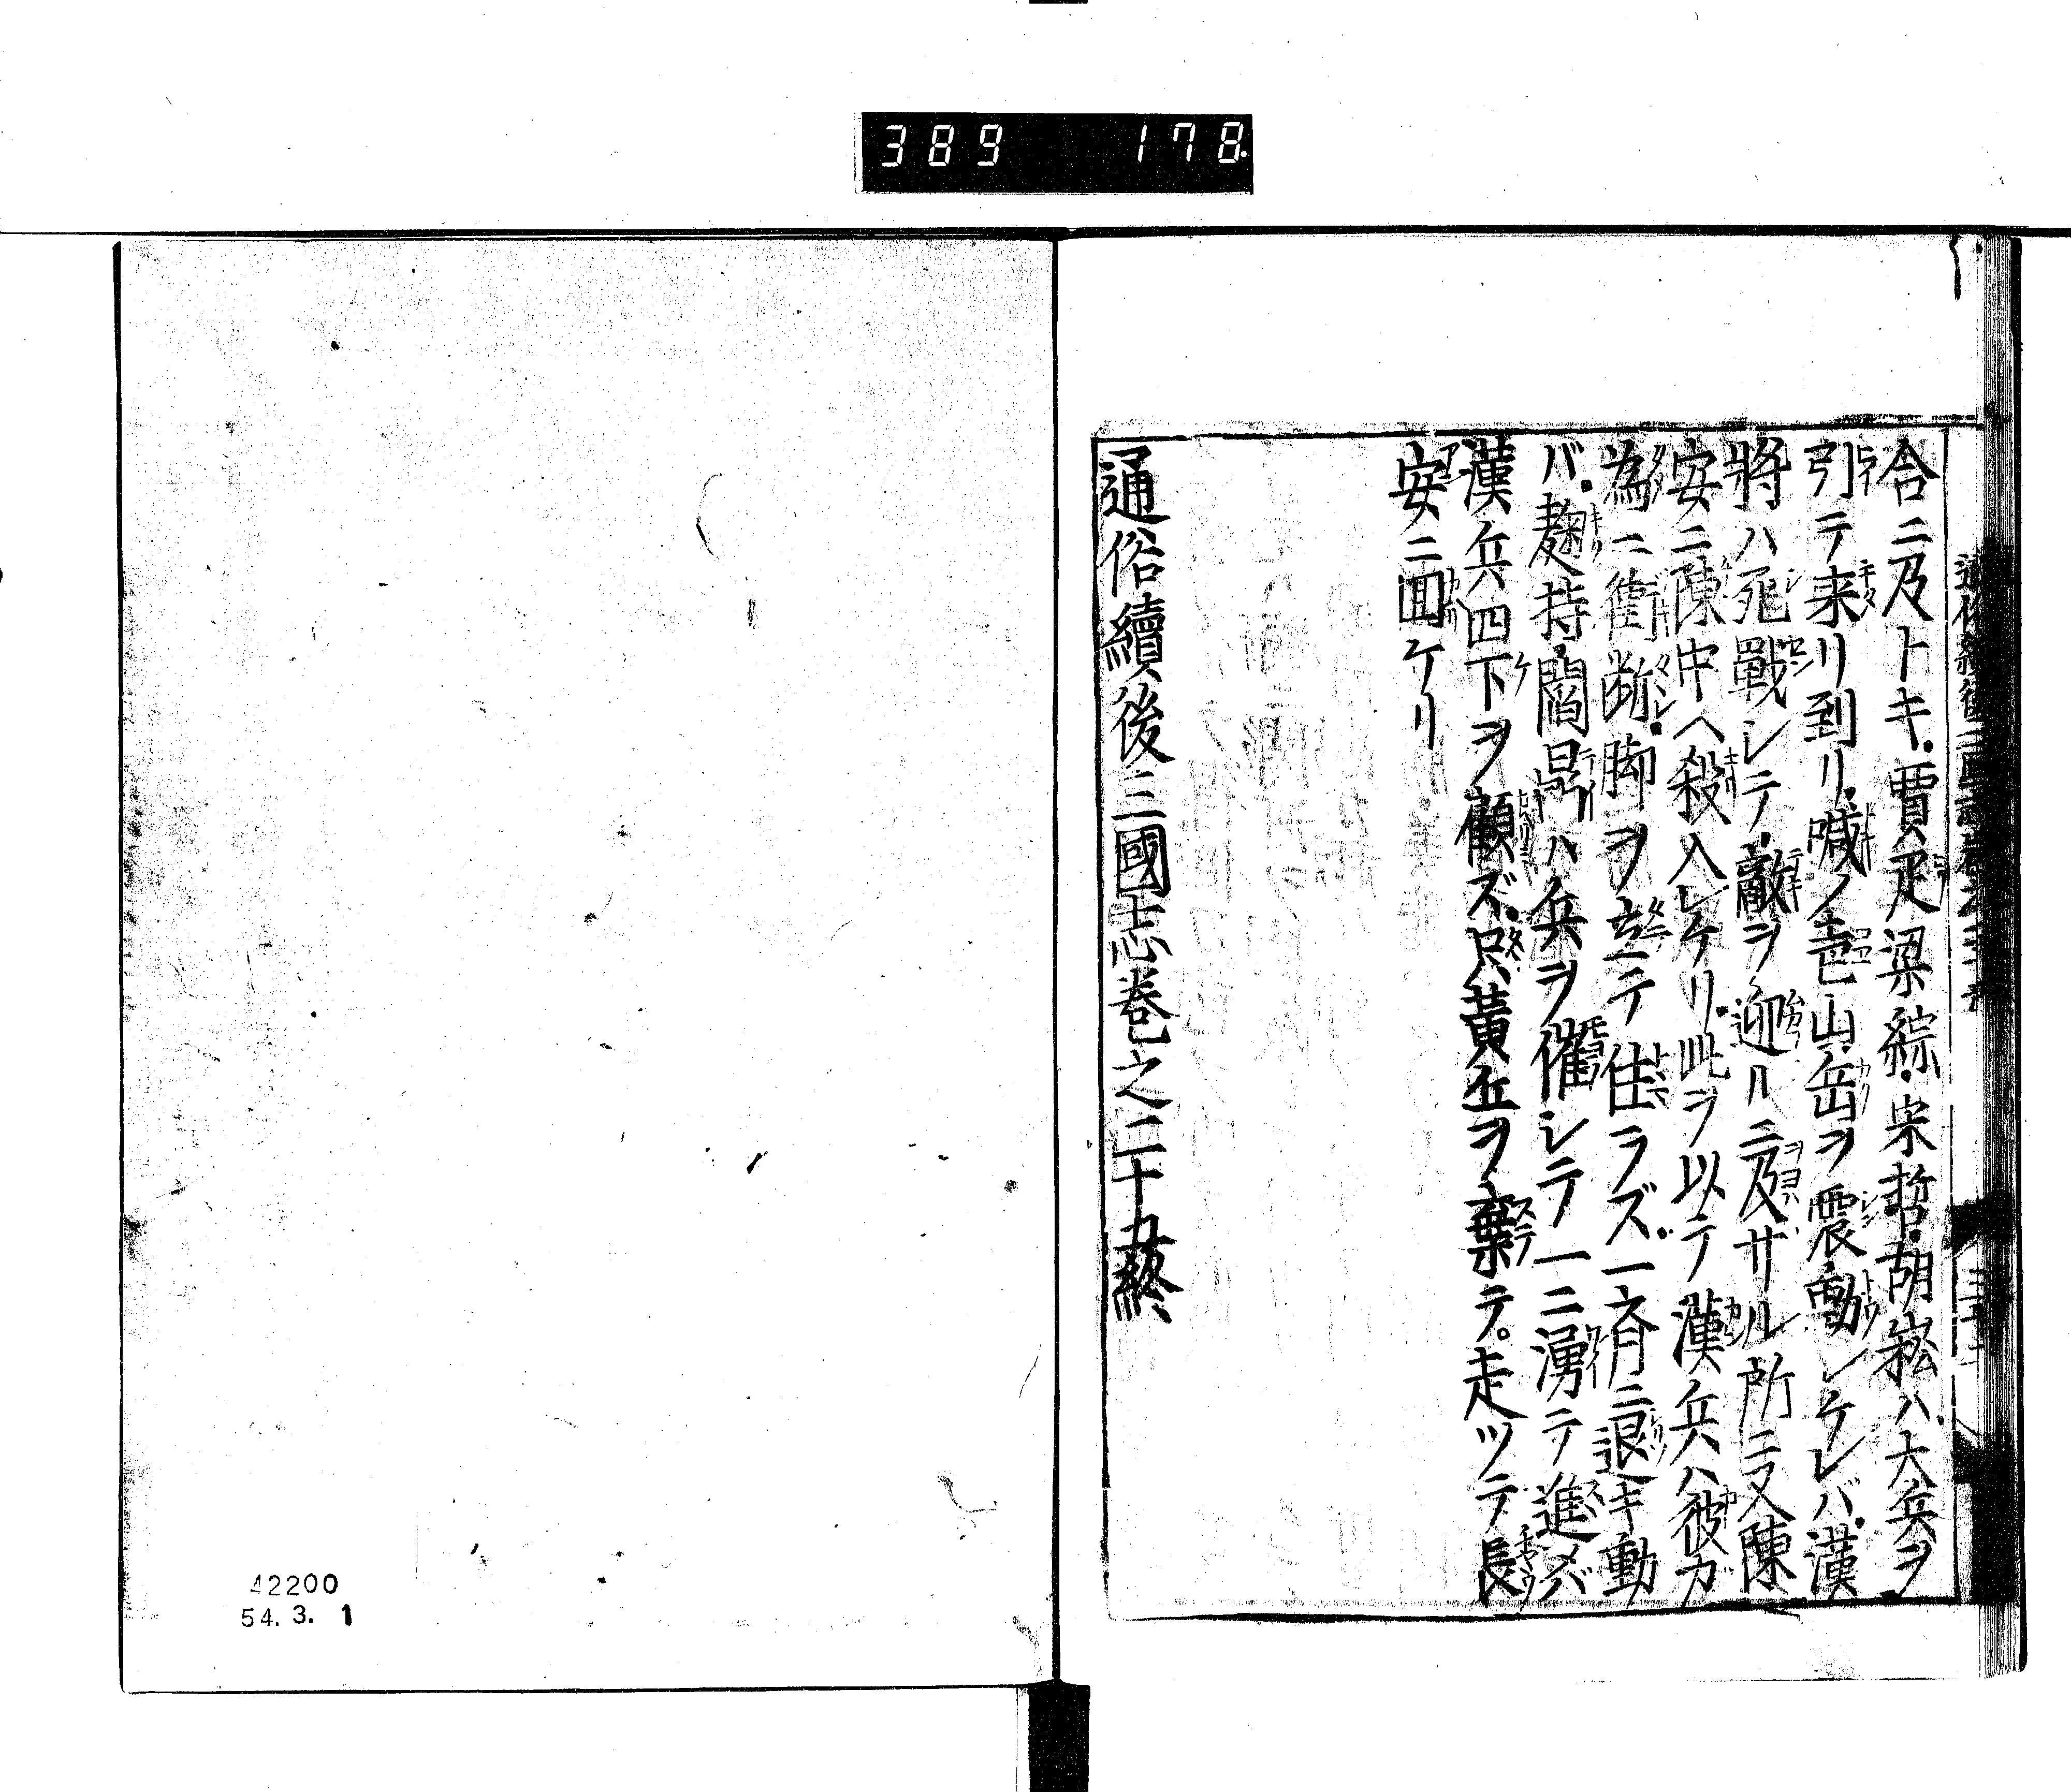 389 178
合ニ及トキ賈疋梁綜宋哲胡崧ハ大兵ヲ
引テ来リ到リ喊ノ声山岳ヲ震動シケレバ漢
將ハ死戰シテ敵ヲ迎ルニ及サル所ニ又陳
安ニ陳中ヘ殺入レケリ此ヲ以テ漢兵ハ彼カ
為ニ衝断脚ヲ立テ住ラズ一斉ニ退キ動
バ麹持閻鼎ハ兵ヲ催シテ一二湧テ進メバ
漢兵四下ヲ顧ズ只黄丘ヲ棄テ走ツテ長
安ニ回ケリ
通俗續後三國志巻之二十五終
42200
54. 3. 1